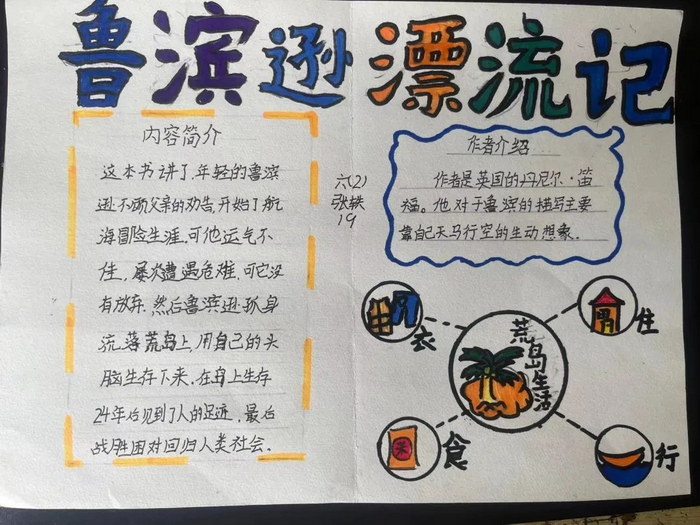 鲁滨逊漂流记
内容简介
这本书讲了,年轻的鲁滨
逊不顾父亲的劝告,开始了航
海冒险生涯,可他运气不
佳,屡次遭遇危难,可它没
有放弃,然后鲁滨逊孤身
流落荒岛上,用自己的头
脑生存下来,在岛上生存
24年后见到了人的足迹,最后
战胜困对回归人类社会.
六(2)
张轶
19
作者介绍
作者是英国的丹尼尔·笛
福。他对于鲁滨的描写主要
靠自己天马行空的生动想象。
荒岛生活
衣
住
食
行